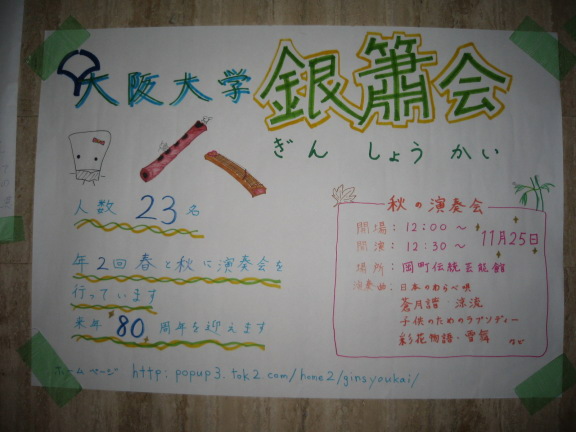 大阪大学 銀簫会
ぎん しょう かい
人数 23名
年2回春と秋に演奏会を
行っています
来年80周年を迎えます
秋の演奏会
11月25日
開場：12:00～
開演：12:30～
場所：岡町伝統芸能館
演奏曲：日本のわらべ唄
蒼月譜・涼流
子供のためのラプソディー
彩花物語・雪舞 など
ホームページ http: popup3.tok2.com/home2/ginsyoukai/